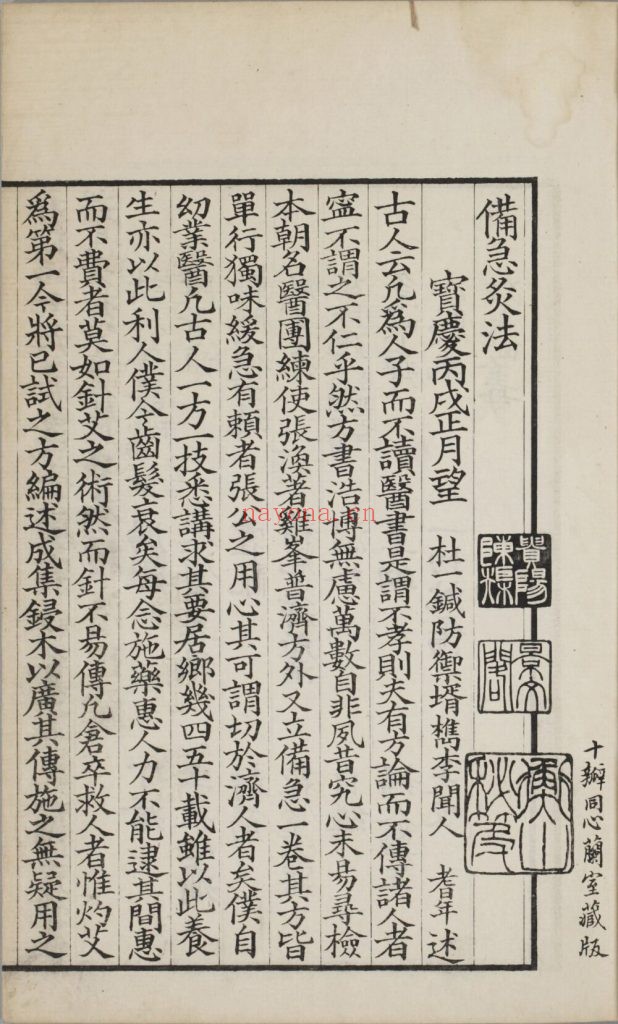 備急灸法
寶慶丙戌正月望　杜一鍼防禦壻檇李聞人　耆年　述
古人云凡爲人子而不讀醫書是謂不孝則夫有方論而不傳諸人者
寍不謂之不仁乎然方書浩博無慮萬數自非夙昔究心未易尋檢
本朝名醫團練使張渙著雞峯普濟方外又立備急一卷其方皆
單行獨味緩急有頼者張公之用心其可謂切於濟人者矣僕自
幼業醫凡古人一方一技悉講求其要居鄉幾四五十載雖以此養
生亦以此利人僕今齒髮衰矣每念施藥惠人力不能逮其間惠
而不費者莫如針艾之術然而針不易傳凡倉卒救人者惟灼艾
爲第一今將已試之方編述成集鋟木以廣其傳施之無疑用之
貴陽陳榘
十瓣同心蘭室藏版
nayona.cn